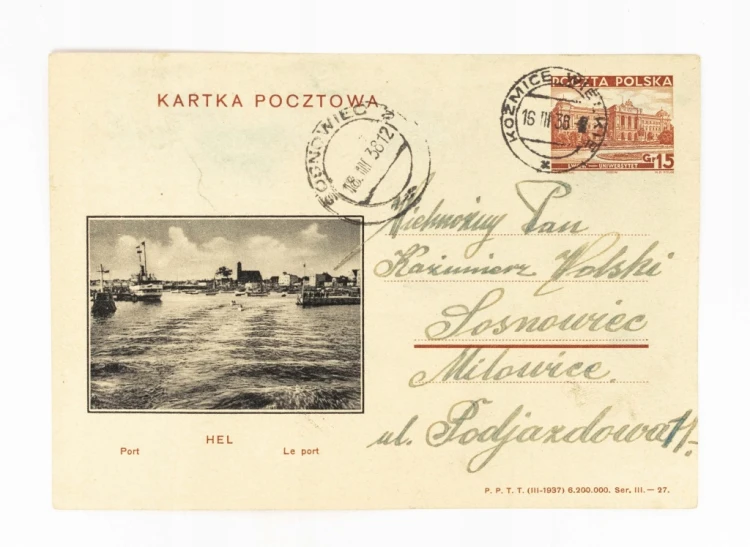 KARTKA POCZTOWA
SOSNOWIEC 3
18.III 38 12
KOŹMICE WIELKIE
16 III 38
POCZTA POLSKA
UNIWERSYTET
Gr 15
Wielmożny Pan
Kazimierz Wolski
Sosnowiec
Milowice
ul. Podjazdowa 11.
HEL
Port
Le port
P. P. T. T. (III-1937) 6.200.000. Ser. III. — 27.